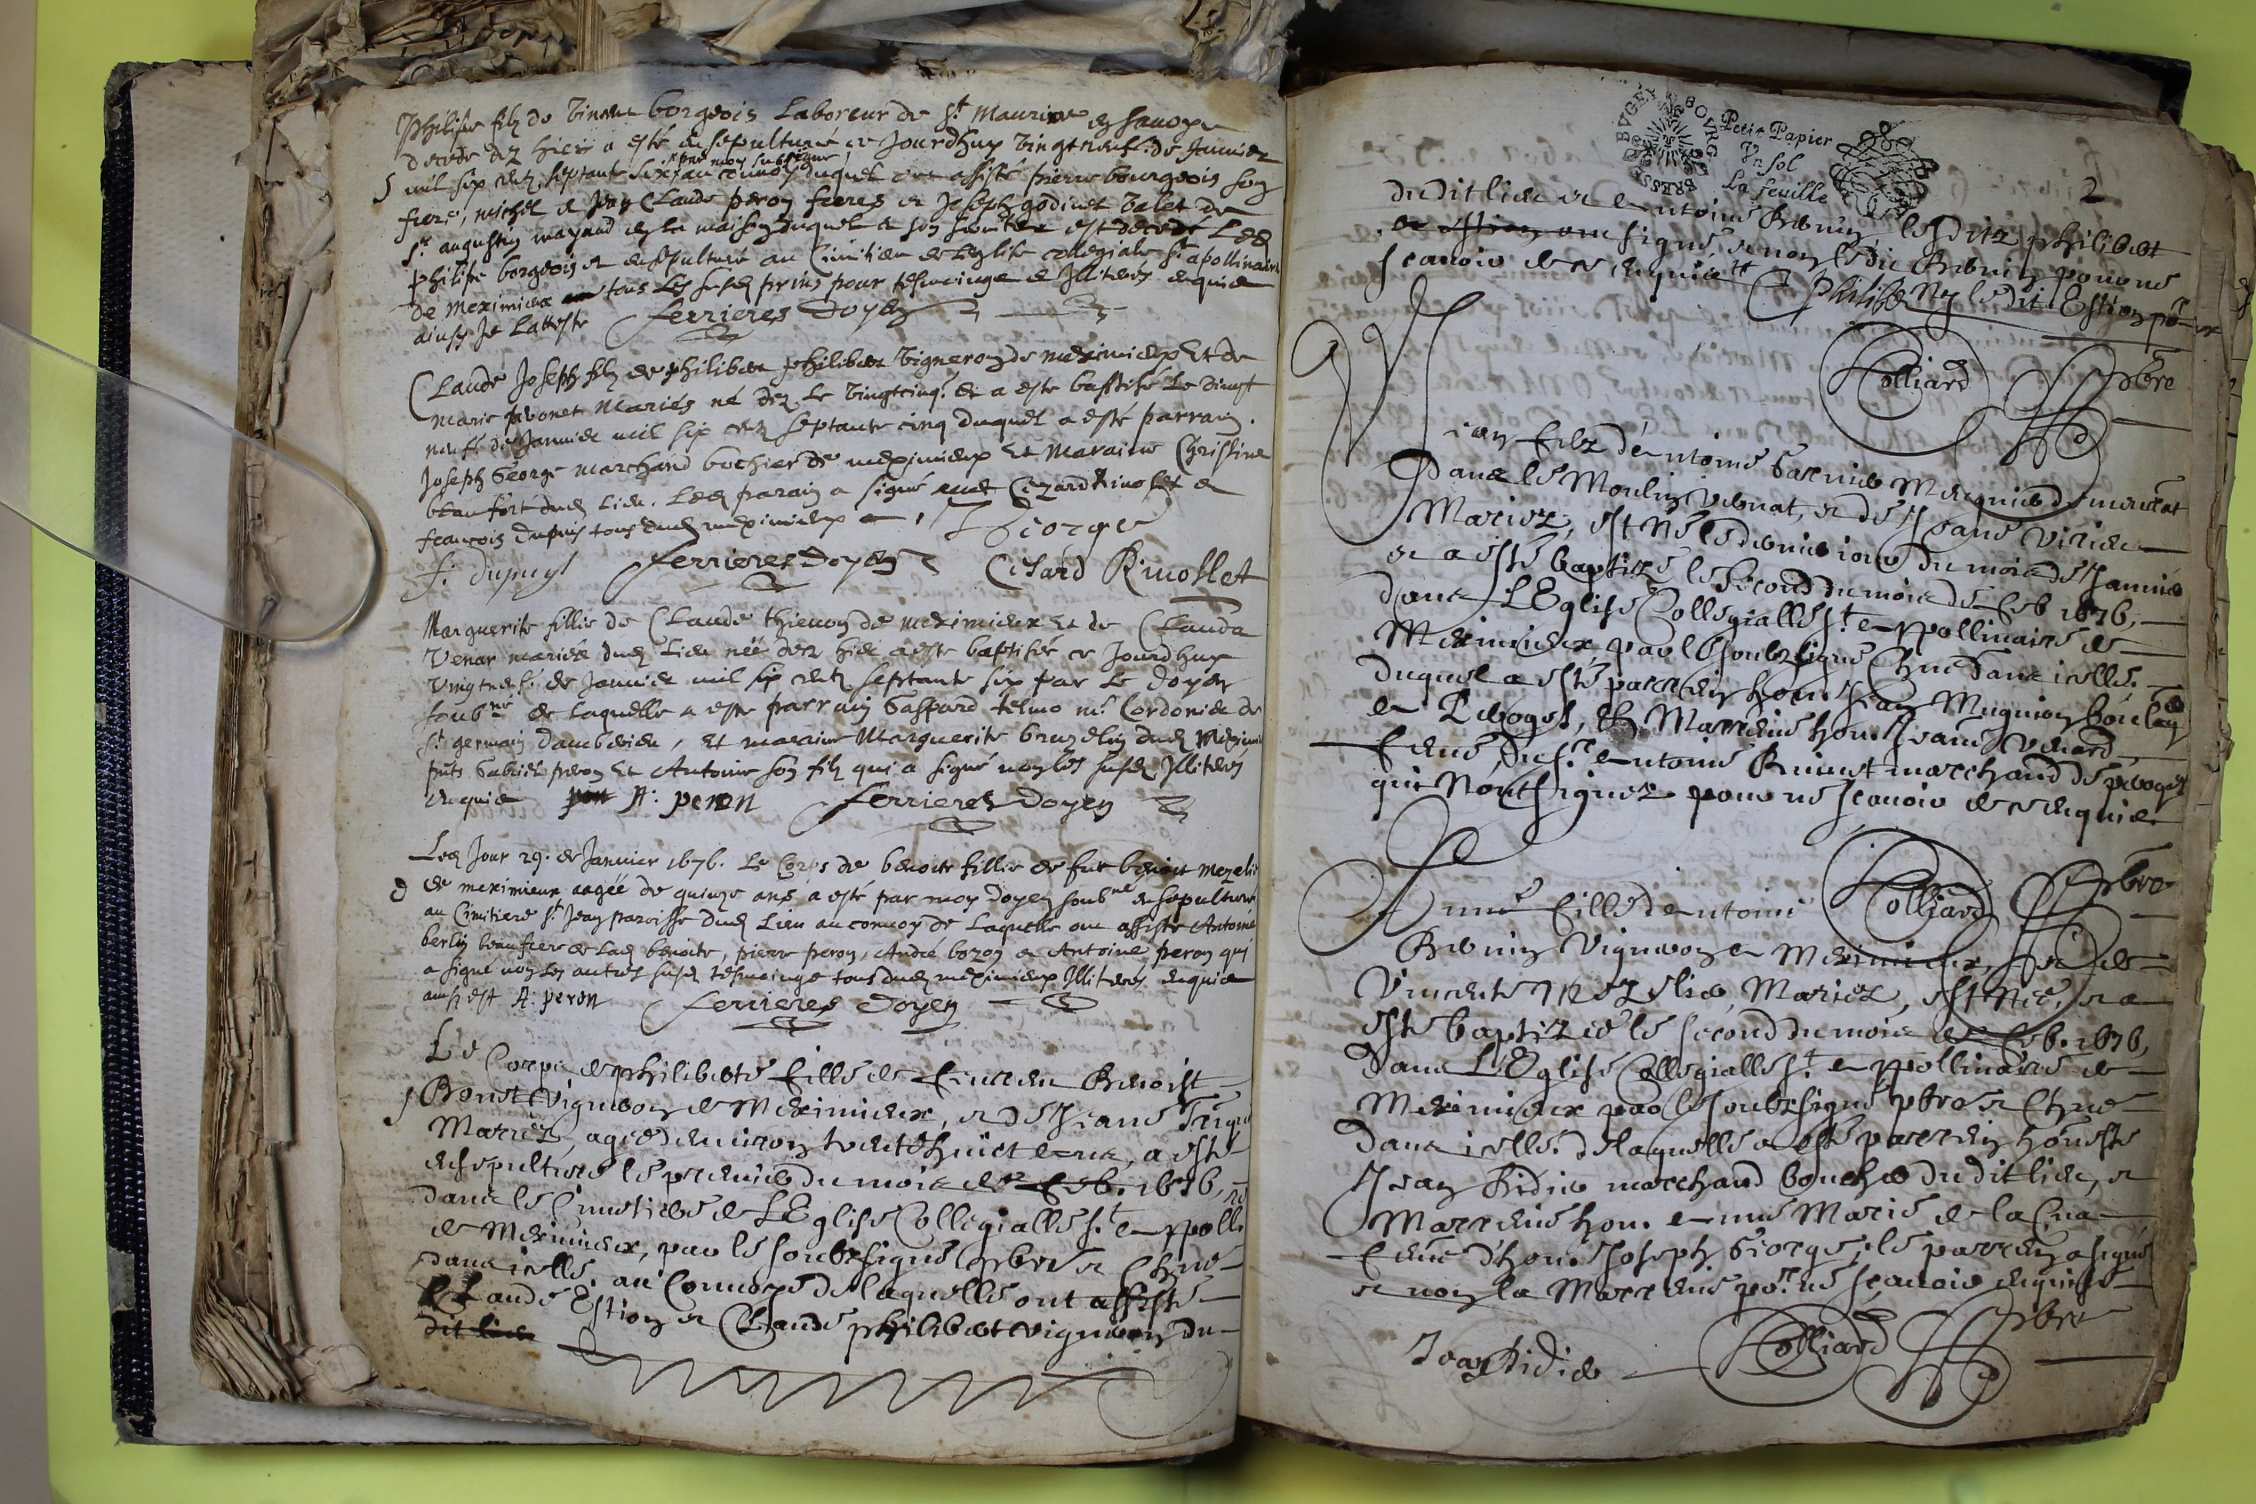 Philipe filz de Vincent borgeois Laboreur de St Maurixe en Savoye
decedé dez hier a esté ensepulturé ce Jourdhuy vingt neuf de Janvier
mil six centz septante six par moy soubsigné au convoy duquel ont assisté pierre bourgeois son
frere, michel et Jean Claude peron freres et Joseph godinet valet de
Sr augustin mayaud en la maison duquel et son service est decedé Led
philipe borgeois et ensepulturé au Cimitiere de Leglise collegiale St apollinaire
de Meximieux tous Les susd prins pour tesmoinge et Illiteres enquis
ainsy Je Latteste Ferrieres Doyen
Claude Joseph filz de philibert philibert Vigneron de meximieux Et de
marie Mariés né dez Le vingtcinq. et a esté baptisé Le vingt
neuf de Janvier mil six centz septante cinq duquel a esté parrain
Joseph George marchand bochier de meximieux Et Maraine Christine
beaufort dud Lieu. Led parain a signé avec Cezard Rinollet et
francois dupuis tous dud meximieux George
f. dupuys Ferrieres Doyen Cesard Rinollet
Marguerite fillie de Claude thienon de meximieux Et de Clauda
Venar mariés dud Lieu néé dez hier a esté baptisée ce Jourdhuy
vingtneuf de Janvier mil six centz septante six par Le doyen
soubné de Laquelle a esté parrain Gaspard telmo mr Cordonier de
St germain dambereiu, Et maraine Marguerite dud Meximi
pnts Gabriel peron Et Antoine son filz qui a signé non les susd Illiteres
enquis A: peron Ferrieres Doyen
Led Jour 29. de Janvier 1676. Le Corps de benoite fillie de feu benoit mezelie
de meximieux aagéé de quinze ans a esté par moy doyen soubné ensepulturé
au Cimitiere St Jean paroisse dud Lieu au convoy de Laquelle ont assisté Antoine
berlin beaufrere de Lad benoite, pierre peron, André bozon et Antoine peron qui
a signé non les autres susd tesmoinge tous dud meximieux Illiteres enquis
ainsy est A: peron Ferrieres Doyen
Le Corps de philiberte fille de Estienne Benoist
Bonet Vigneron de Meximieux, et de Jeane
Mariez, agée denviron trente huict ans, a esté
ensepulturé le premier du mois de Feb. 1676,
dans le Cimetiere de LEglise Collegialle St appolli
de Meximieux, par le soubzsigné pbre et Chne
dans icelle. au Convoye de laquelle ont assisté
Claude Estion et Claude philibert vigneron du
dit lieu
Petit Papier
Vn sol
La feuille
BRESSE BVGEY BOVRG
2
dudit lieu et antoine Brunin lesditz philibert
et Estion ont signé, et non ledit Brunin pour ne
scavoir de ce enquis
Colliard pbre
Jean Filz dantoine Garnier Mugnier demeurant
dans le Moulin Venat, et de Jeane
Mariez, est Né le dernier iour du mois de Janvier
et a esté baptizé le Second du mois de Feb 1676,
dans LEglise Collegialle St appollinaire de
Meximieux par le soubzsigné Chne dans icelle.
duquel a esté parrein hon. Jean Mugnier
a Peroges, et Marreine hon. Jeane Venard
Feme, de Sr antoine marchand de peroges
qui Nont signez pour ne scavoir de ce enquis.
Colliard pbre
Anne Fille dantoine
Brunin Vigneron a Meximieux, et de
Vincente Mezelie, Mariez, est Née, et a
esté baptizée le second du mois de Feb. 1676,
dans LEglise Collegialle St appollinaire de
Meximieux par le soubzsigné pbre et Chne
dans icelle. de laquelle a esté parrein honeste
Jean Didier marchand boucher dudit lieu, et
Marreine hon. anne Marie de la Cua
Feme dhon. Joseph George, le parrein a signé
et non la Marreine pour ne scavoir enquise
Jean Didier Colliard pbre